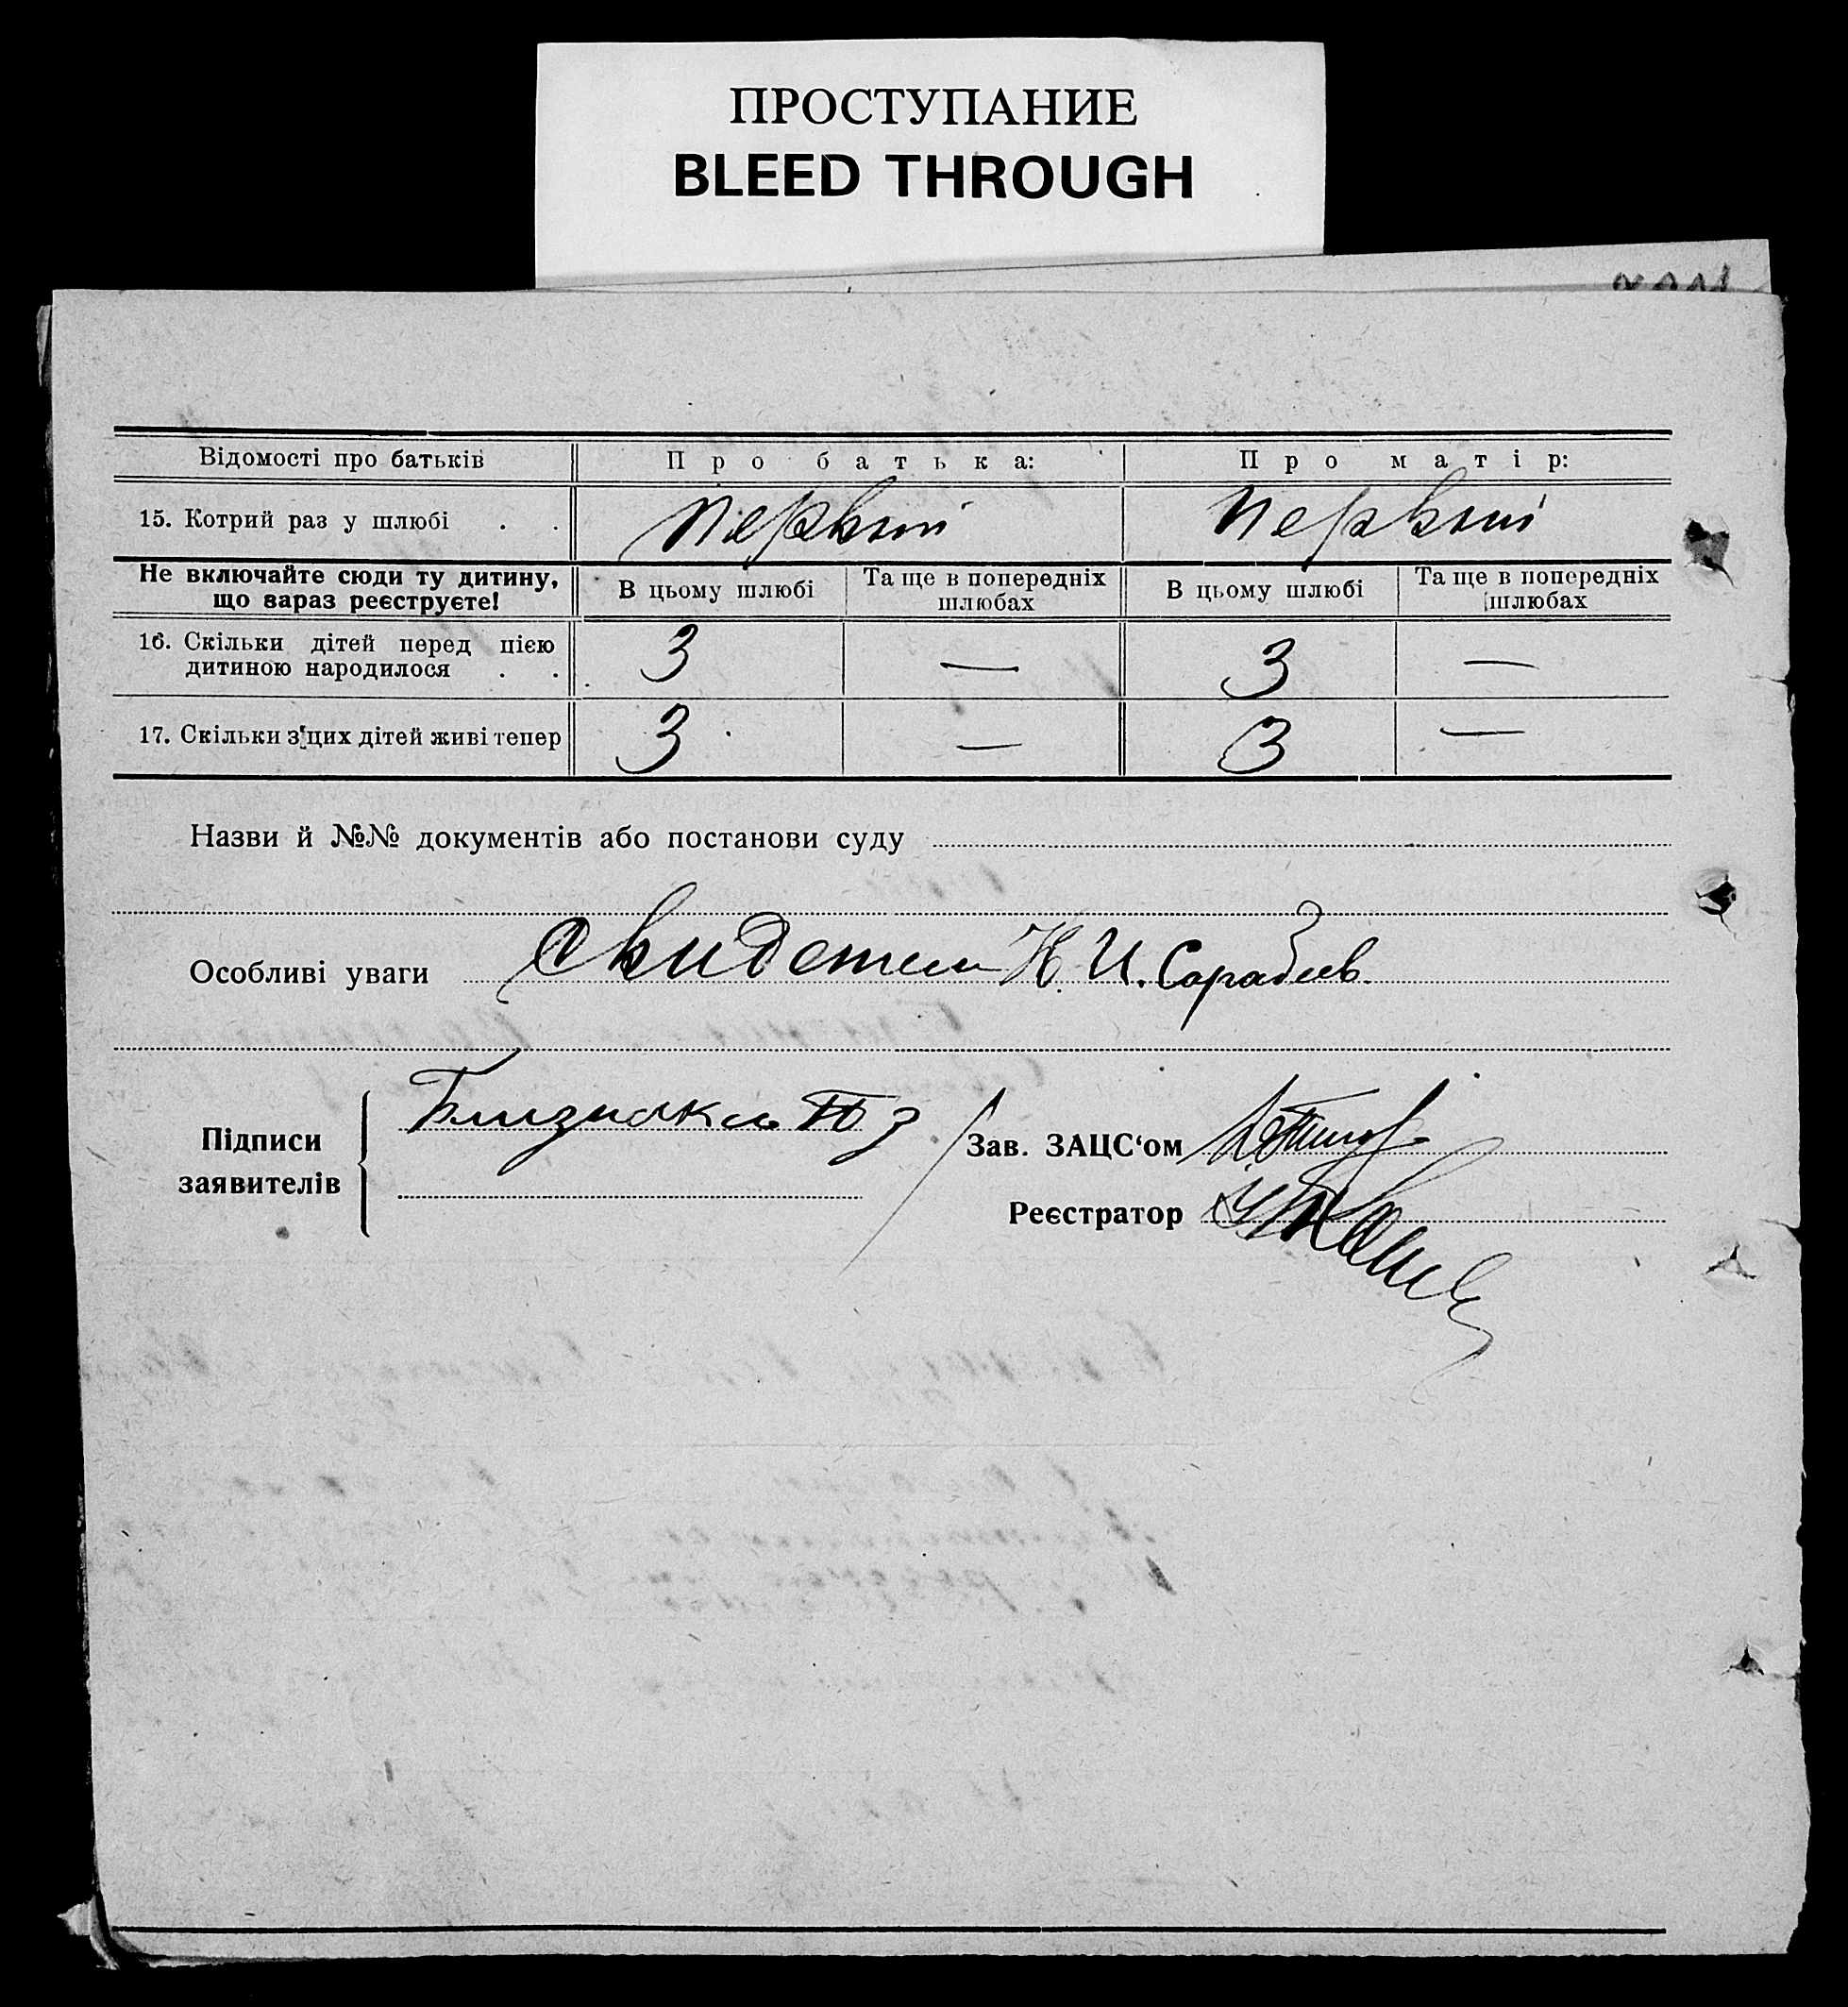 ПРОСТУПАНИЕ
BLEED THROUGH
Відомості про батьків Про батька: Про матір:
15. Котрий раз у шлюбі . . первый первый
Не включайте сюди ту дитину, що вараз реєструєте! В цьому шлюбі Та ще в попередніх шлюбах В цьому шлюбі Та ще в попередніх шлюбах
16. Скільки дітей перед цією
дитиною народилося . . 3 — 3 —
17. Скільки з цих дітей живі тепер 3 — 3 —
Назви й №№ документів або постанови суду
Особливі уваги Свидетели Н. И. Сарабеев
Підписи заявителів
Зав. ЗАЦС'ом
Реєстратор